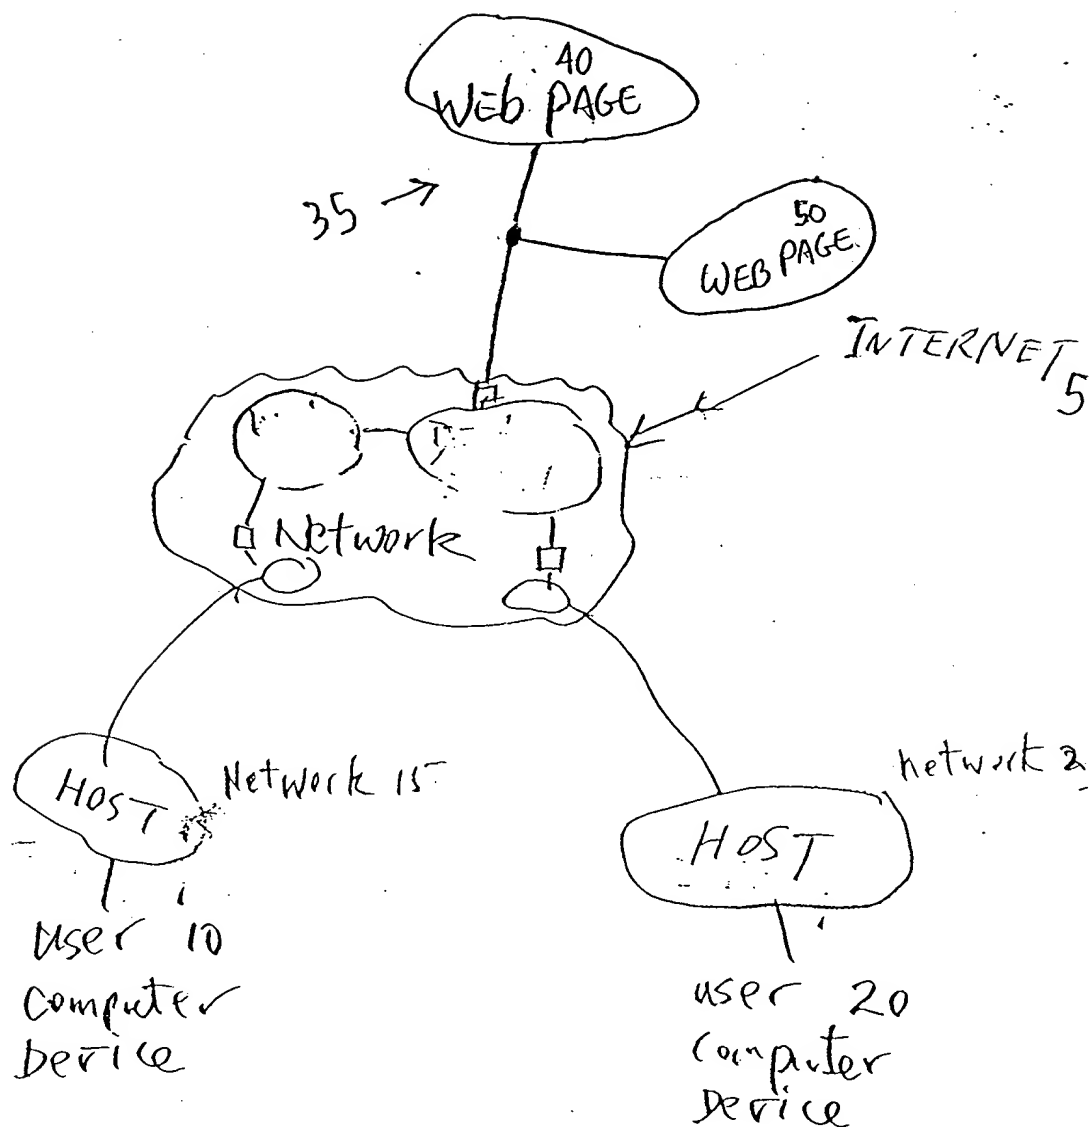 40
WEb PAGE
35
50
WEB PAGE
INTERNET
5
Network
HOST
Network 15
network 2
HOST
user 10
Computer
Device
user 20
Computer
Device